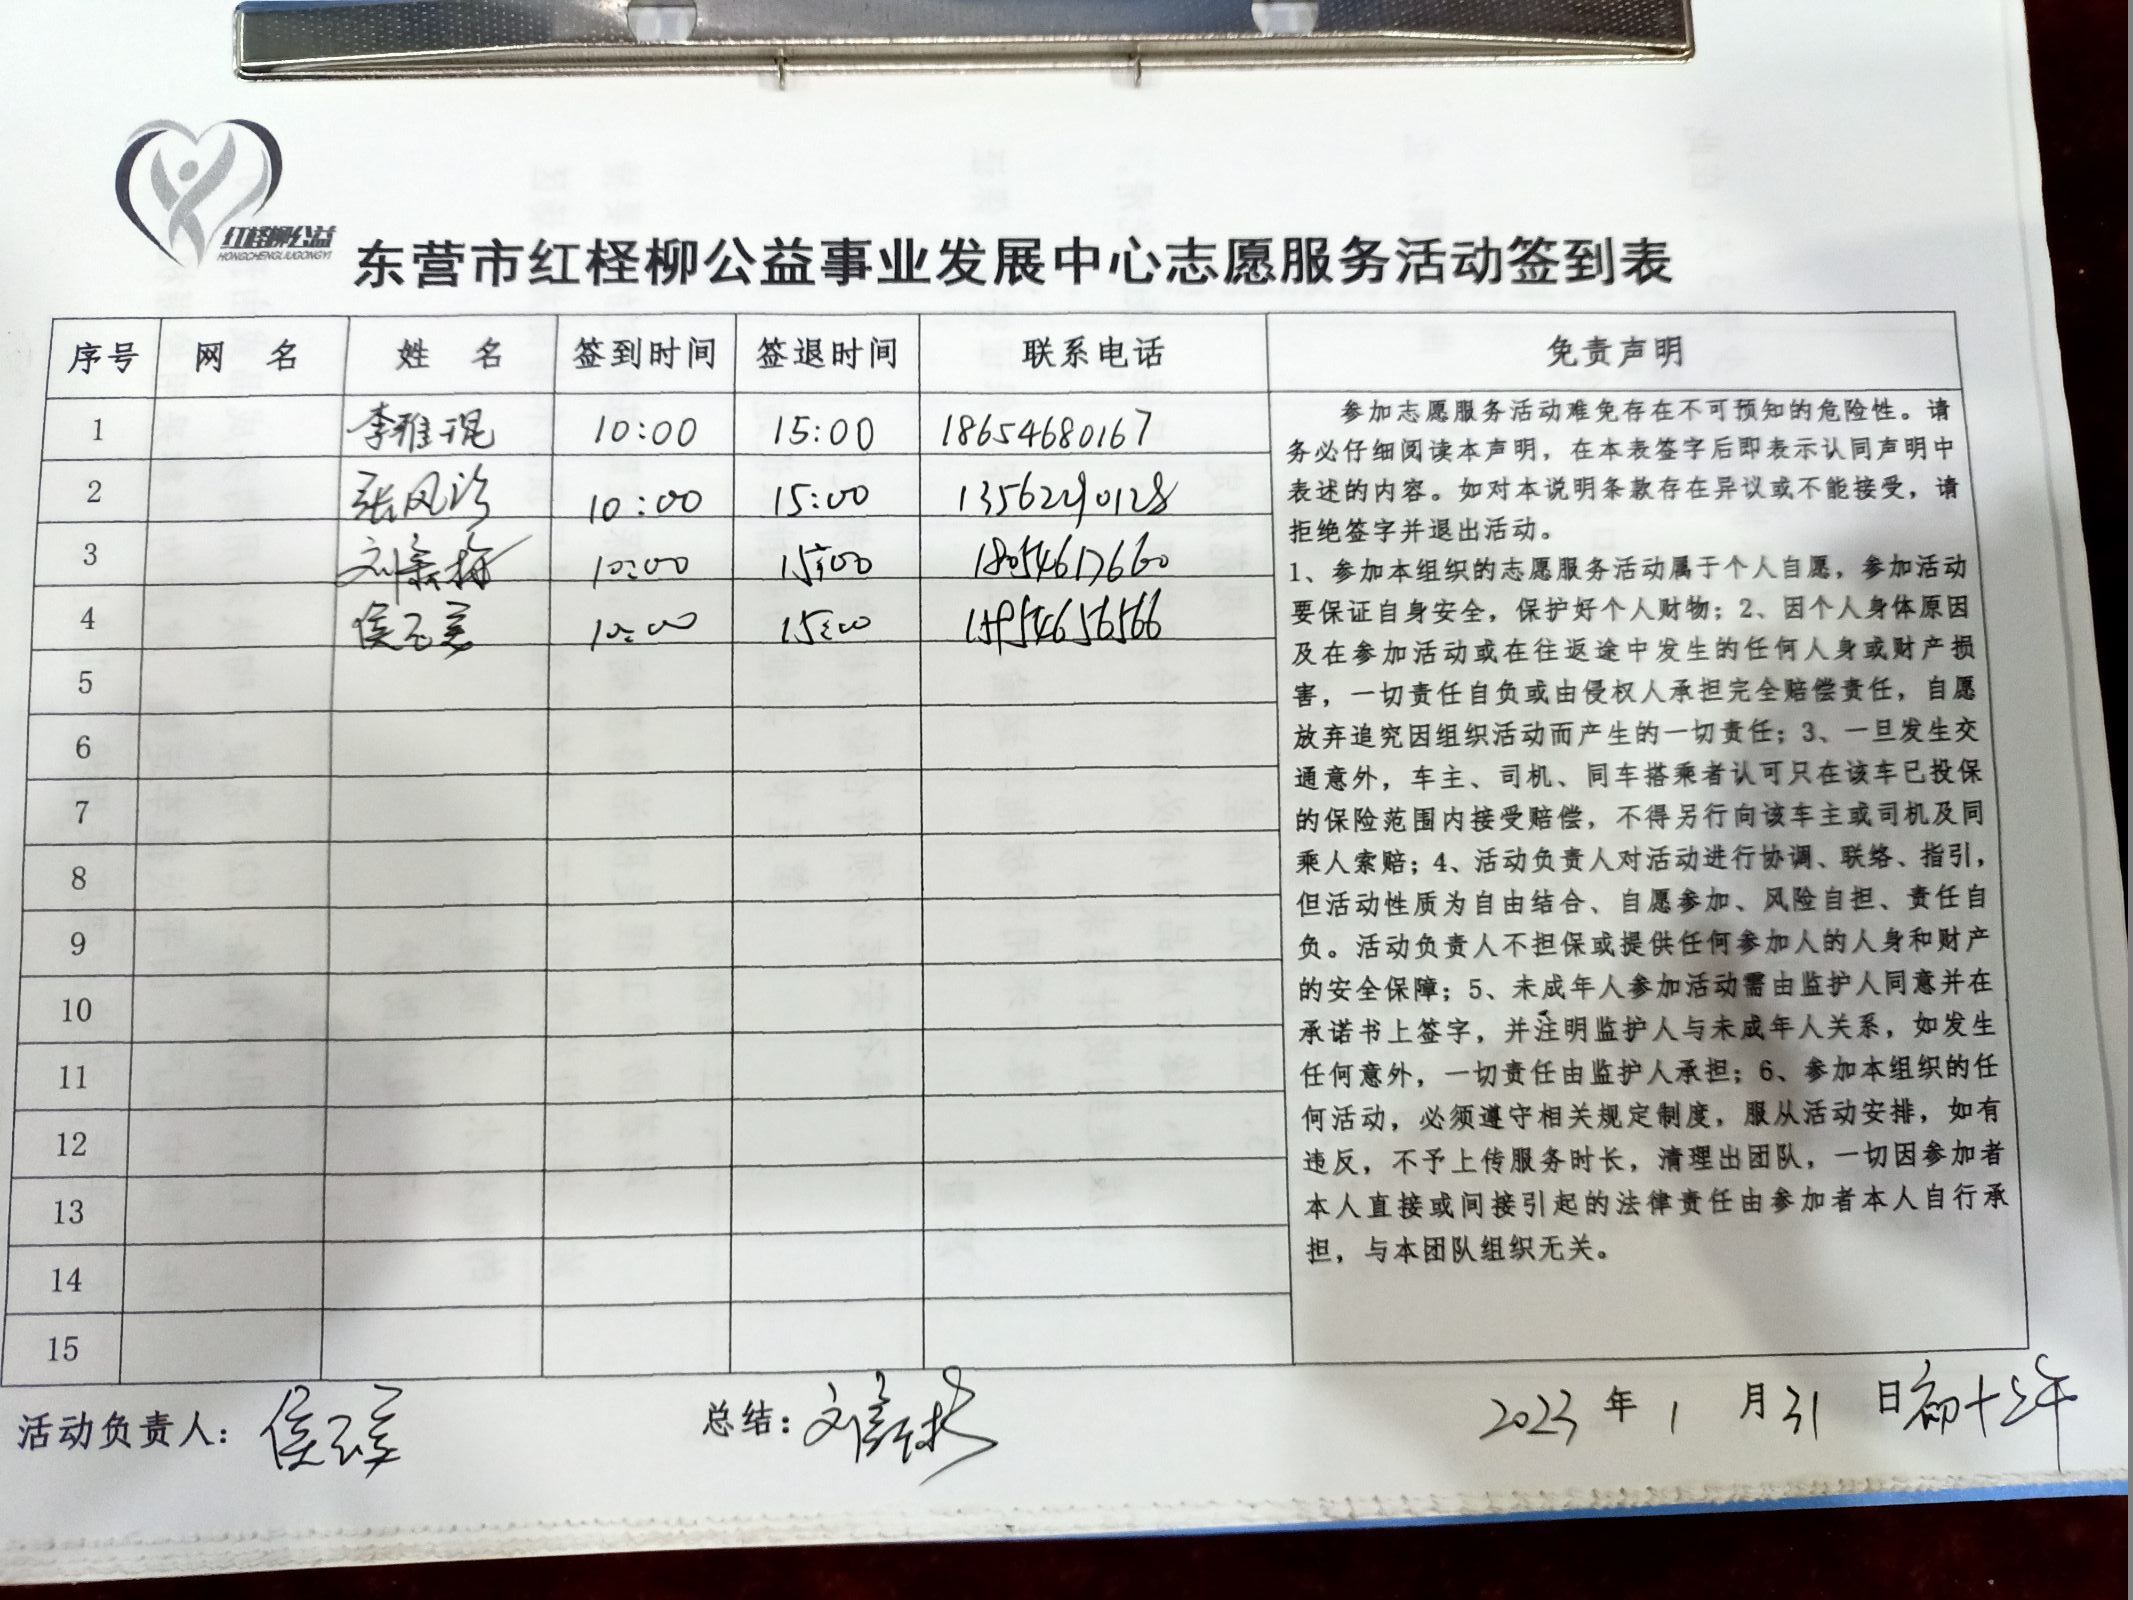 红柽柳公益
HONGCHENGLIUGONGYI
东营市红柽柳公益事业发展中心志愿服务活动签到表
序号 网 名 姓 名 签到时间 签退时间 联系电话 免责声明
1 李雅琨 10:00 15:00 18654680167
2 张风珍 10:00 15:00 13562290128
3 10:00 15:00 18054617660
4 10:00 15:00 15954656566
5
6
7
8
9
10
11
12
13
14
15
参加志愿服务活动难免存在不可预知的危险性。请
务必仔细阅读本声明，在本表签字后即表示认同声明中
表述的内容。如对本说明条款存在异议或不能接受，请
拒绝签字并退出活动。
1、参加本组织的志愿服务活动属于个人自愿，参加活动
要保证自身安全，保护好个人财物；2、因个人身体原因
及在参加活动或在往返途中发生的任何人身或财产损
害，一切责任自负或由侵权人承担完全赔偿责任，自愿
放弃追究因组织活动而产生的一切责任；3、一旦发生交
通意外，车主、司机、同车搭乘者认可只在该车已投保
的保险范围内接受赔偿，不得另行向该车主或司机及同
乘人索赔；4、活动负责人对活动进行协调、联络、指引，
但活动性质为自由结合、自愿参加、风险自担、责任自
负。活动负责人不担保或提供任何参加人的人身和财产
的安全保障；5、未成年人参加活动需由监护人同意并在
承诺书上签字，并注明监护人与未成年人关系，如发生
任何意外，一切责任由监护人承担；6、参加本组织的任
何活动，必须遵守相关规定制度，服从活动安排，如有
违反，不予上传服务时长，清理出团队，一切因参加者
本人直接或间接引起的法律责任由参加者本人自行承
担，与本团队组织无关。
活动负责人： 总结： 2023 年 1 月 31 日 初十